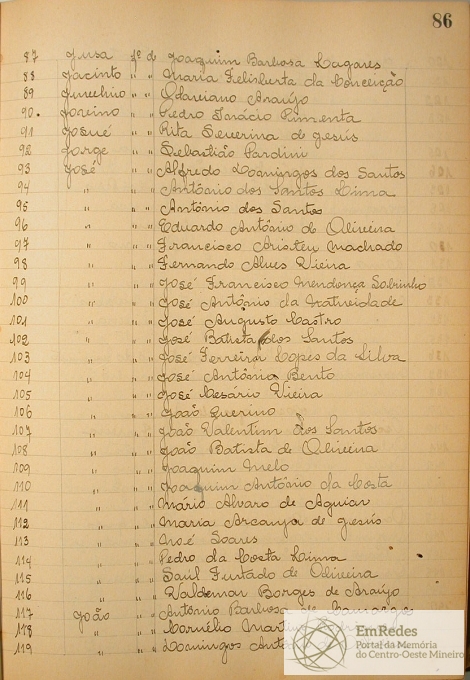 86
87 Jusa fº de Joaquim Barbosa Lugares
88 Jacinto " " Maria Felisberta da Conceição
89 " " Odaviano Araújo
90. Jovino " " Pedro Inácio Pimenta
91 Josué " " Rita Severina de Jesús
92 Jorge " " Sebastião Pardini
93 José " " Alfredo Domingos dos Santos
94 " " " Antônio dos Santos Lima
95 " " " Antônio dos Santos
96 " " " Eduardo Antônio de Oliveira
97 " " " Francisco Aristeu Machado
98 " " " Fernando Alves Vieira
99 " " " José Francisco Mendonça Sobrinho
100 " " " José Antônio da Natividade
101 " " " José Augusto Castro
102 " " " José Batista dos Santos
103 " " " José Ferreira Lopes da Silva
104 " " " José Antônio Bento
105 " " " José Cesário Vieira
106 " " " João Querino
107 " " " João Valentim dos Santos
108 " " " João Batista de Oliveira
109 " " " Joaquim Melo
110 " " " Joaquim Antônio da Costa
111 " " " Mário Alvaro de Aguiar
112 " " " Maria Arcanja de Jesús
113 " " " Noé Soares
114 " " " Pedro da Costa Lima
115 " " " Saúl Furtado de Oliveira
116 " " " Valdemar Borges de Araújo
117 João " " Antônio Barbosa de Camargos
118 " " " Cornélio
119 " " " Domingos
EmRedes
Portal da Memória
do Centro-Oeste Mineiro